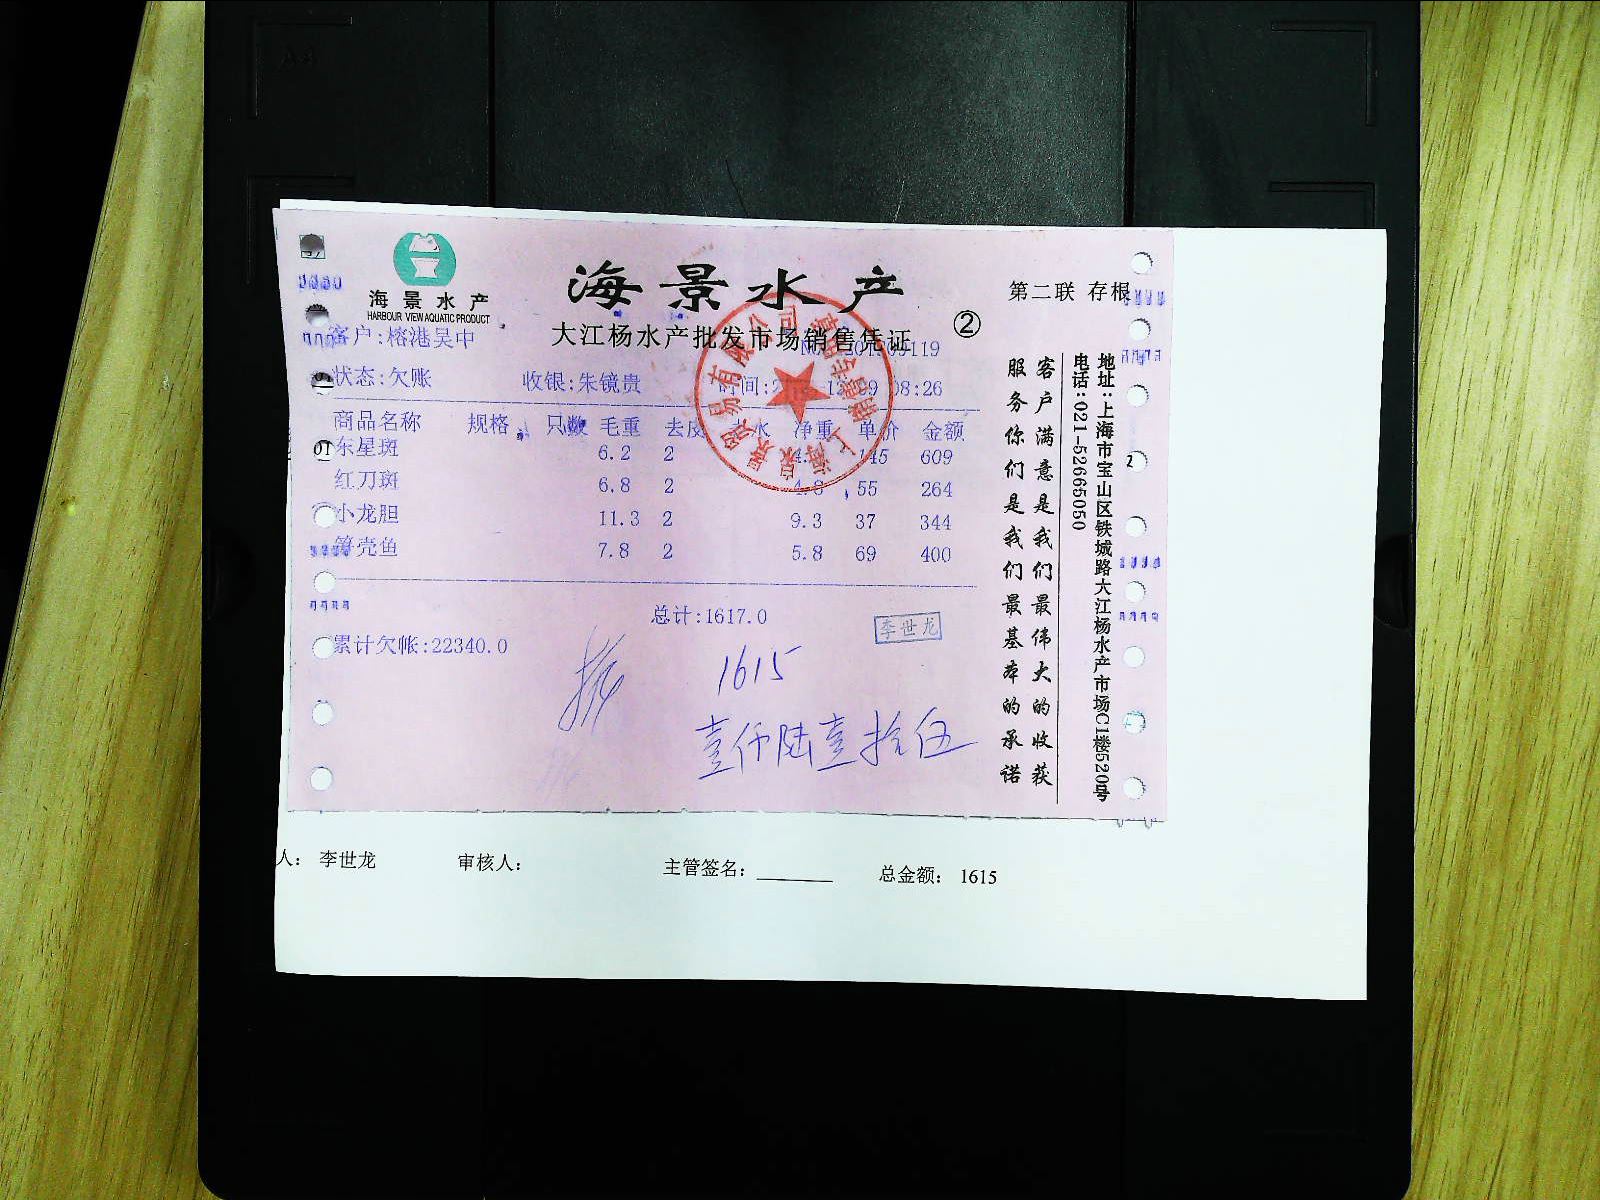 海景水产
HARBOUR VIEW AQUATIC PRODUCT
海景水产
第二联 存根
大江杨水产批发市场销售凭证
②
客户:榕港吴中
状态:欠账 收银:朱镜贵 08:26
商品名称 规格 只数 毛重 去皮 净重 单价 金额
01
东星斑 6.2 2 145 609
红刀斑 6.8 2 4.8 55 264
小龙胆 11.3 2 9.3 37 344
笋壳鱼 7.8 2 5.8 69 400
总计:1617.0
李世龙
累计欠帐:22340.0
1615
壹仟陆壹拾伍
客户满意是我们最伟大的收获
服务你们是我们最基本的承诺
地址:上海市宝山区铁城路大江杨水产市场C1楼520号
电话:021-52665050
2
人: 李世龙 审核人: 主管签名: 总金额: 1615